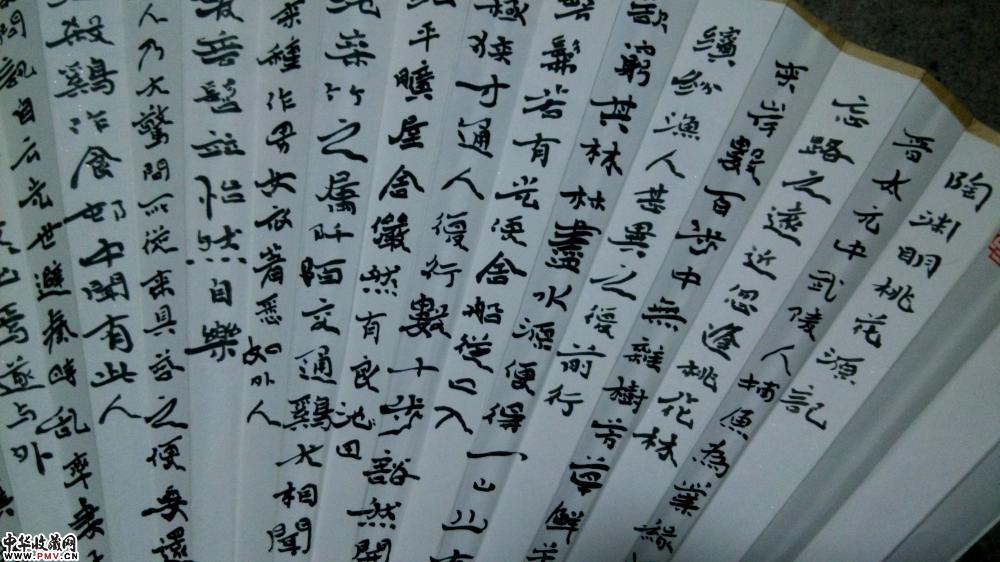 陶渊明桃花源記
晋太元中武陵人捕魚為業緣
忘路之遠近忽逢桃花林
夾岸數百步中無雜樹芳草鮮美
繽紛漁人甚異之復前行
欲窮其林林盡水源便得一山山有
髣髴若有光便舍船從口入
極狹才通人復行數十步豁然開
平曠屋舍儼然有良池田
桑竹之屬阡陌交通鷄犬相聞
來種作男女衣著悉如外人
髮垂髫並怡然自樂
人乃大驚問所從來具答之便要還
殺鷄作食邨中聞有此人
問訊自云先世避秦時乱率妻
焉遂与外
中华收藏网
www.PMV.CN